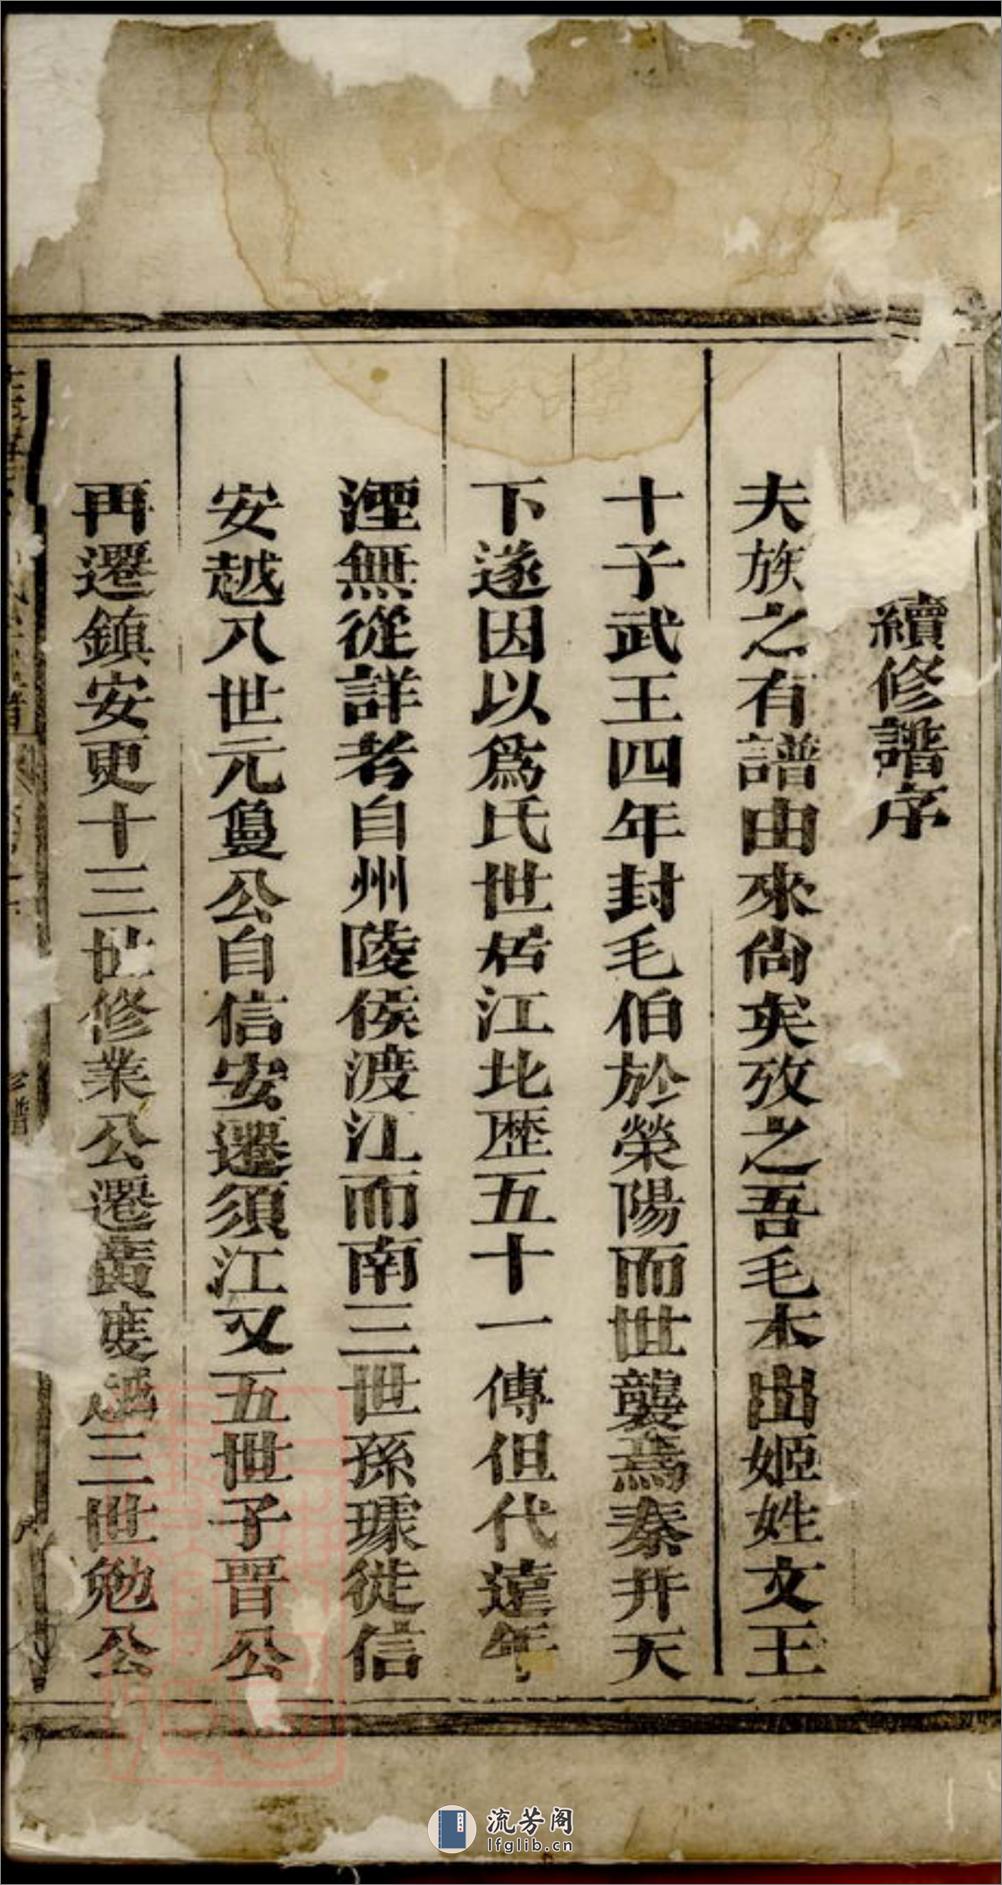 續修譜序
夫族之有譜由來尙矣攷之吾毛本出姬姓文王
十子武王四年封毛伯於榮陽而世襲焉秦并天
下遂因以爲氏世居江北歷五十一傳但代遠年
湮無從詳者自州陵侯渡江而南三世孫璩徙信
安越八世元璗公自信安遷須江又五世子晋公
再遷鎮安更十三世修業公遷黃度越三世勉公
流芳阁
lfglib.cn